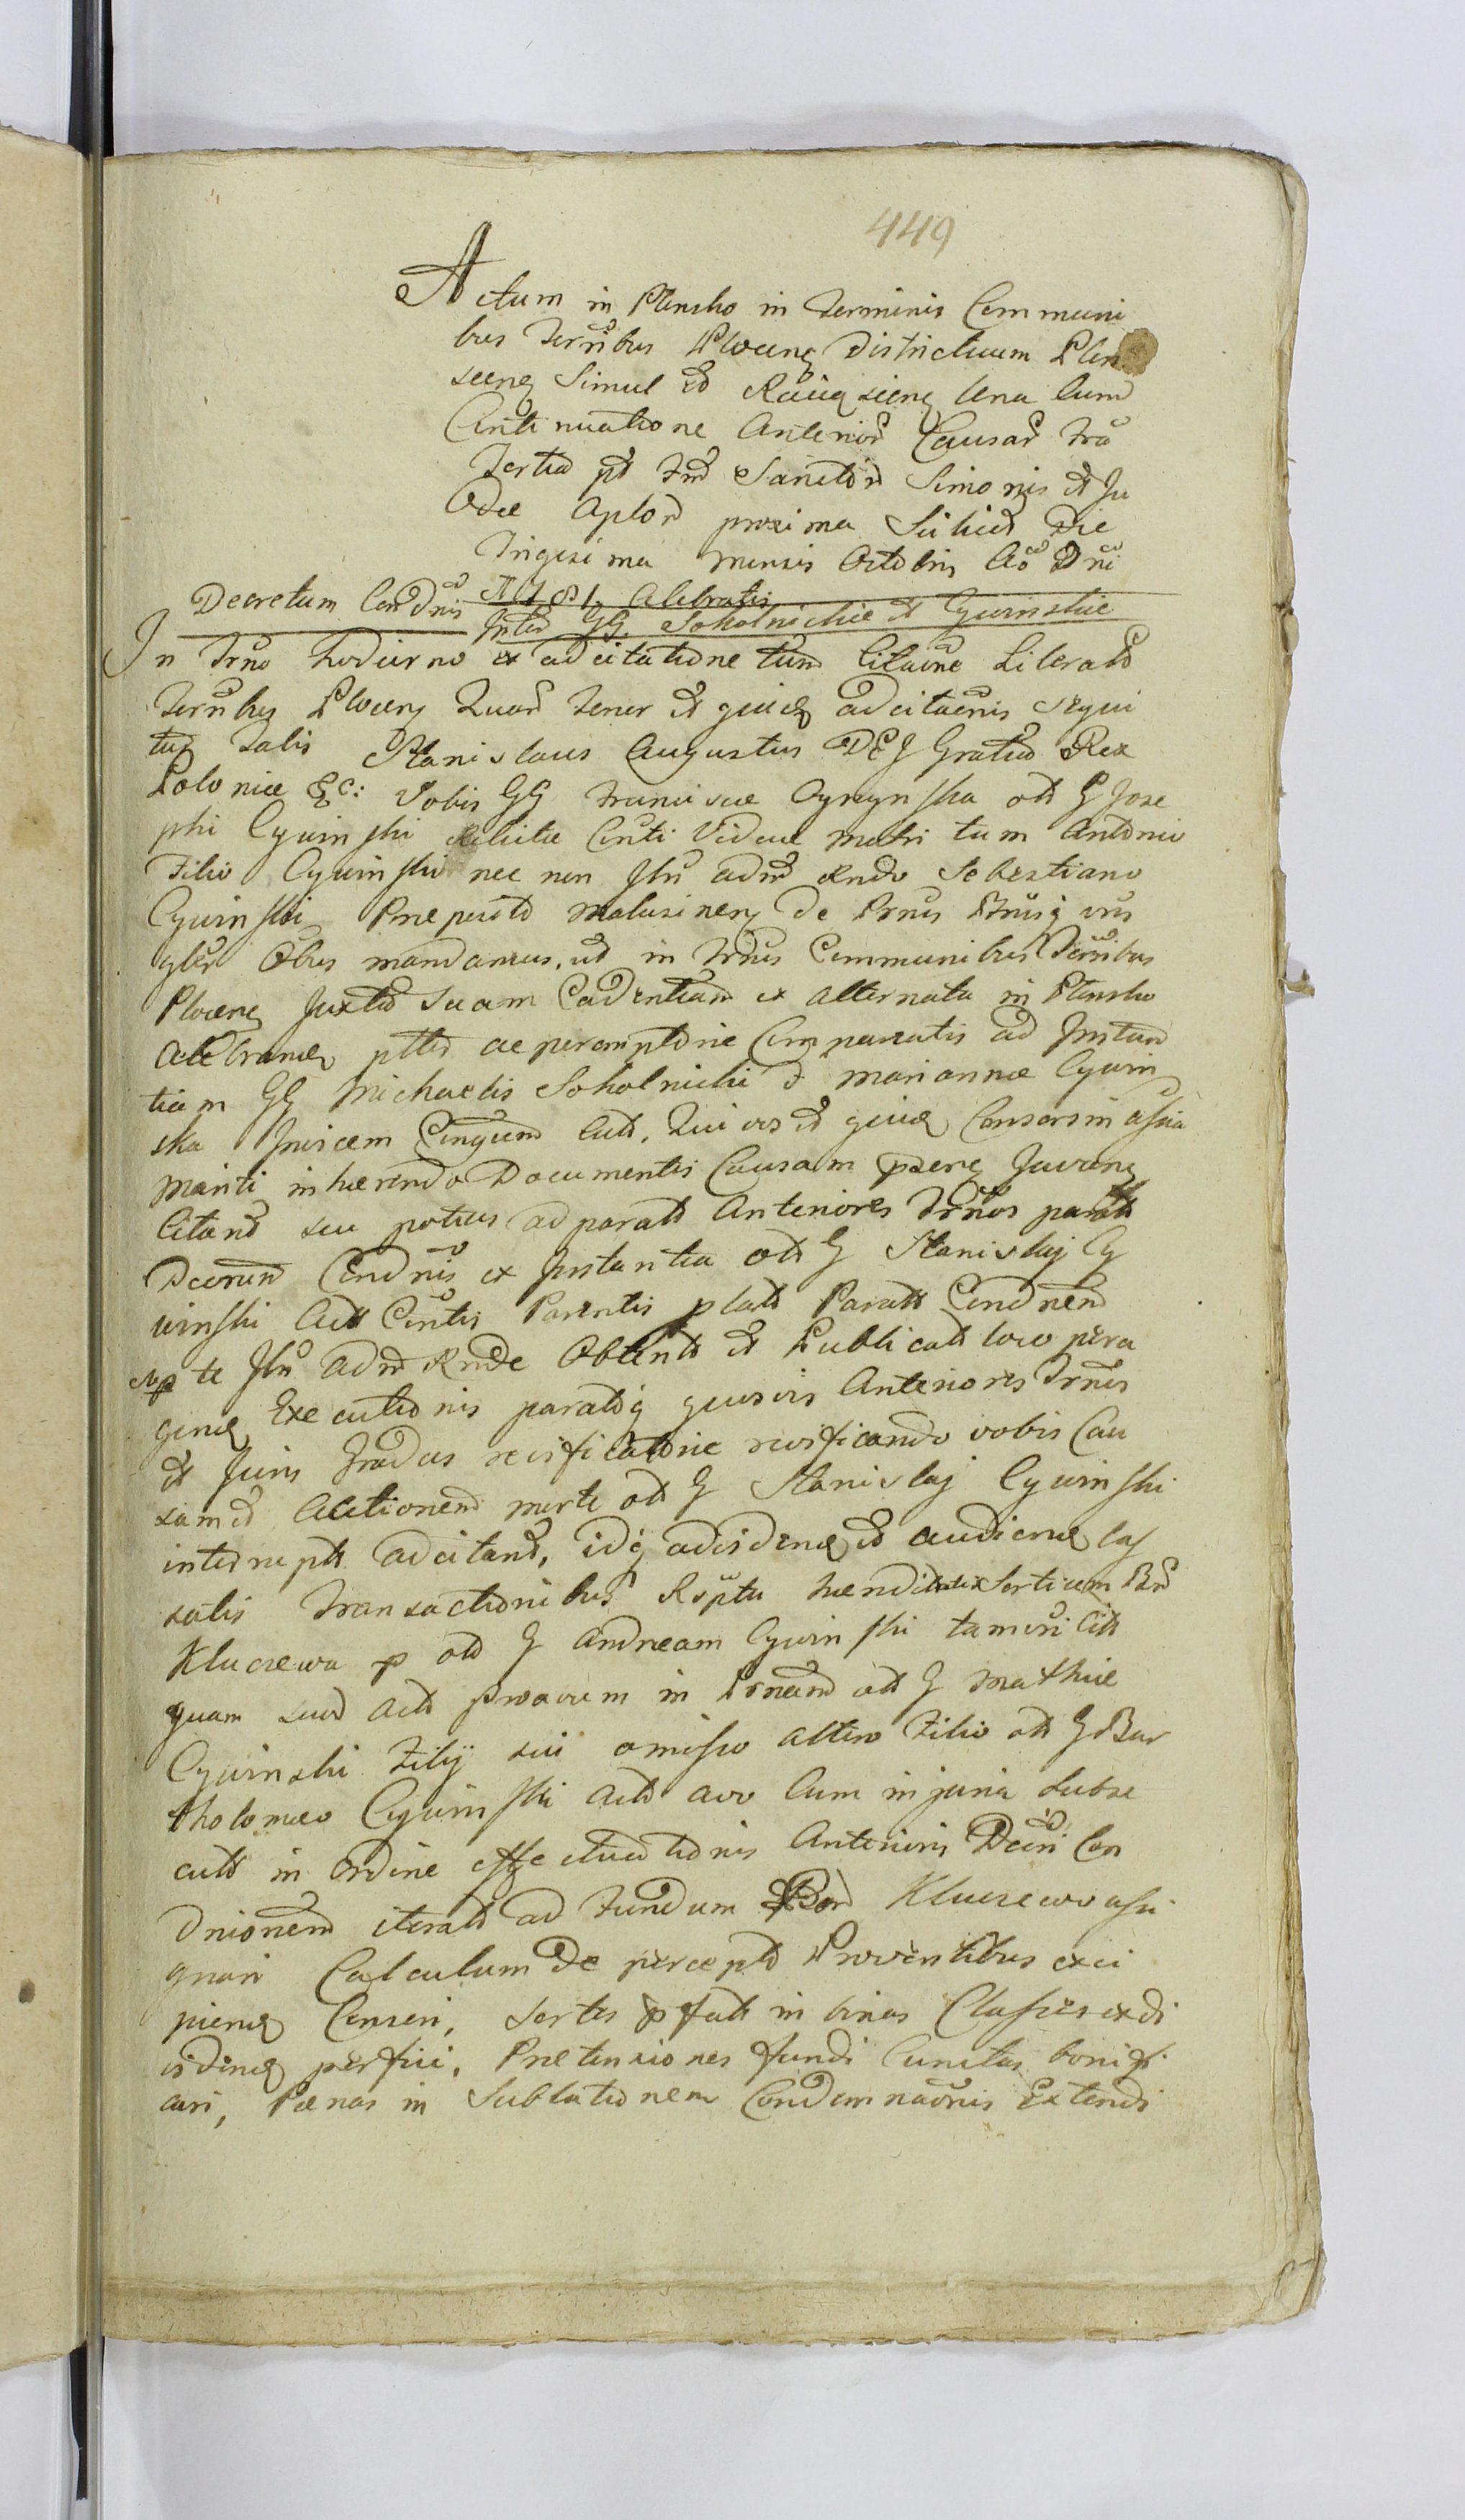 449
Actum in Plonsko in Terminis Communi
bus Terribus Plocen Districtuum Plon
scen Simul et Raciązien Una Cum
Continuatione Anterior Causar Fra
Tertia pt Ftm Sanctor Simonis et Ju
dae Aplor proxima Scilicet Die
Trigesima Mensis Octobris Ao Dni
1781 Celebratis
Decretum Condnis Inter GG. Sokolnickie et Cywinskie
In Trno hodierno ex adcitatione tum Citaone Literali
Terribus Plocen Quar Tenor et quidem adcitaonis sequi
tur Talis Stanislaus Augustus DEI Gratia Rex
Poloniae &c: Vobis GG Franciscae Ogynska olt G Jose
phi Cywinski Relictae Consti Viduae Matri tum Antonio
Filio Cywinski nec non Illri admd Rndo Sebastiano
Cywinski Praeposito Malusinen De Prnis Bnisq vris
glbr Obus mandamus, ut in Trnis Communibus Terribus
Plocen Juxta Suam Cadentiam ex Alternata in Plonsko
Celebrand pttr ac peremptorie Compareatis ad Instan
tiam GG Michaelis Sokolnicki & Mariannae Cywin
ska Invicem Conjgum Actt, Qui vos et quidem Consors in assia
Mariti inhaerendo Documentis Causam psen Juvan
Citand seu potius ad paratt Anteriores Trnos paratt
Decrum Condnis ex Instantia olt G Stanislaj Cy
winski Actt Contis Parentis p latt Paratt Condnem
Np te Illr Admd Rnde Obtent et Publicatt loco pera
gend Executionis paratoq quovis Anteriores Trnos
et Juris Gradus reisficatorie reisficando vobis Cau
sam et Actionem morte olt G Stanislaj Cywinski
interrupt adcitand, idq adcidend et audiend las
satis Transactionibus Rsptu haereditatis Sortium Bnr
Kluczewa p olt G Andream Cywinski tam sri Citt
quam suor Actt proavum in Psnam olt G Mathiae
Cywinski Filij sui omisso altero Filio olt G Bar
tholomaeo Cywinski Actt avo Cum injuria Subse
cutt in Ordine effectuationis Anterioris Decri Con
dnionem iteratt ad Fundum Bonr Kluczewo assi
gnari Calculum De percept Proventibus exci
piend Censeri, Sortes p fatt in binas Classes exdi
visdend perfici, Praetensiones fundi Cunctas bonifi
cari, Paenas in Sublationem Condemnaonis Extendi